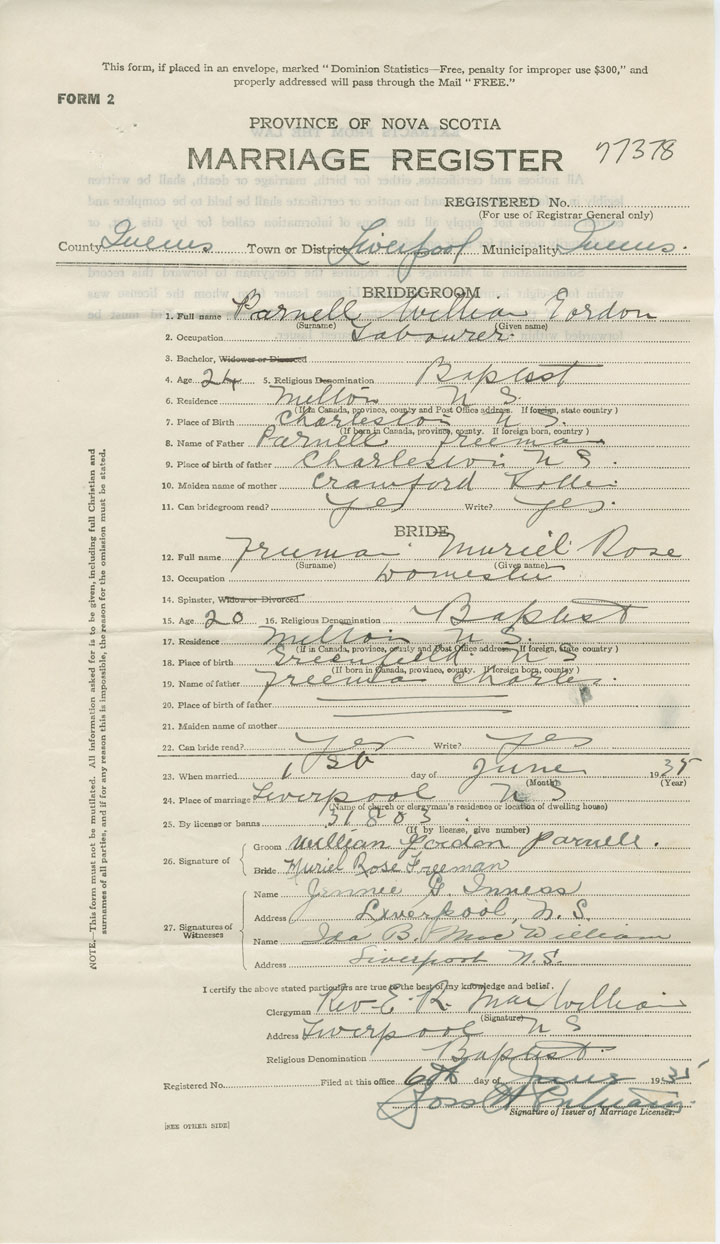 This form, if placed in an envelope, marked "Dominion Statistics—Free, penalty for improper use $300," and
properly addressed will pass through the Mail "FREE."
FORM 2
PROVINCE OF NOVA SCOTIA
MARRIAGE REGISTER 97378
REGISTERED No.
(For use of Registrar General only)
County Queens Town or District Liverpool Municipality Queens.
BRIDEGROOM
1. Full name Parnell William Gordon
(Surname) (Given name)
2. Occupation Labourer.
3. Bachelor, Widower or Divorced
4. Age 24 5. Religious Denomination Baptist
6. Residence Milton N S.
(If in Canada, province, county and Post Office address. If foreign, state country)
7. Place of Birth Charleston N S.
(If born in Canada, province, county. If foreign born, country)
8. Name of Father Parnell Freeman
9. Place of birth of father Charleston N S.
10. Maiden name of mother Crawford
11. Can bridegroom read? yes Write? yes.
BRIDE
12. Full name Freeman Muriel Rose
(Surname) (Given name)
13. Occupation Domestic
14. Spinster, Widow or Divorced
15. Age 20 16. Religious Denomination Baptist
17. Residence Milton N S.
(If in Canada, province, county and Post Office address. If foreign, state country)
18. Place of birth Greenfield N S
(If born in Canada, province, county. If foreign born, country)
19. Name of father Freeman Charles.
20. Place of birth of father
21. Maiden name of mother
22. Can bride read? yes Write? yes
23. When married 1 st day of June 1935
(Month) (Year)
24. Place of marriage Liverpool N S
(Name of church or clergyman's residence or location of dwelling house)
25. By license or banns 31803.
(If by license, give number)
26. Signature of
Groom William Gordon Parnell.
Bride Muriel Rose Freeman
27. Signatures of Witnesses
Name Jennie G. Inness
Address Liverpool, N. S.
Name Ida B. MacWilliam
Address Liverpool N.S.
I certify the above stated particulars are true to the best of my knowledge and belief.
Clergyman Rev. E. R. MacWilliam
(Signature)
Address Liverpool N S
Religious Denomination Baptist.
Registered No. Filed at this office 6th day of June 1935
Signature of Issuer of Marriage Licenses.
[SEE OTHER SIDE]
NOTE.—This form must not be mutilated. All information asked for is to be given, including full Christian and
surnames of all parties, and if for any reason this is impossible, the reason for the omission must be stated.